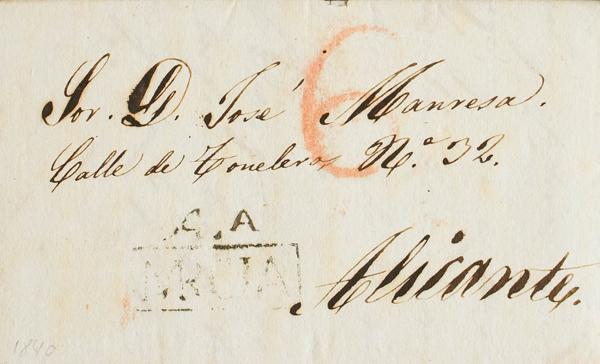 6
Sor. D. José Manresa.
Calle de Toneleros N.º 32.
Alicante.
1840